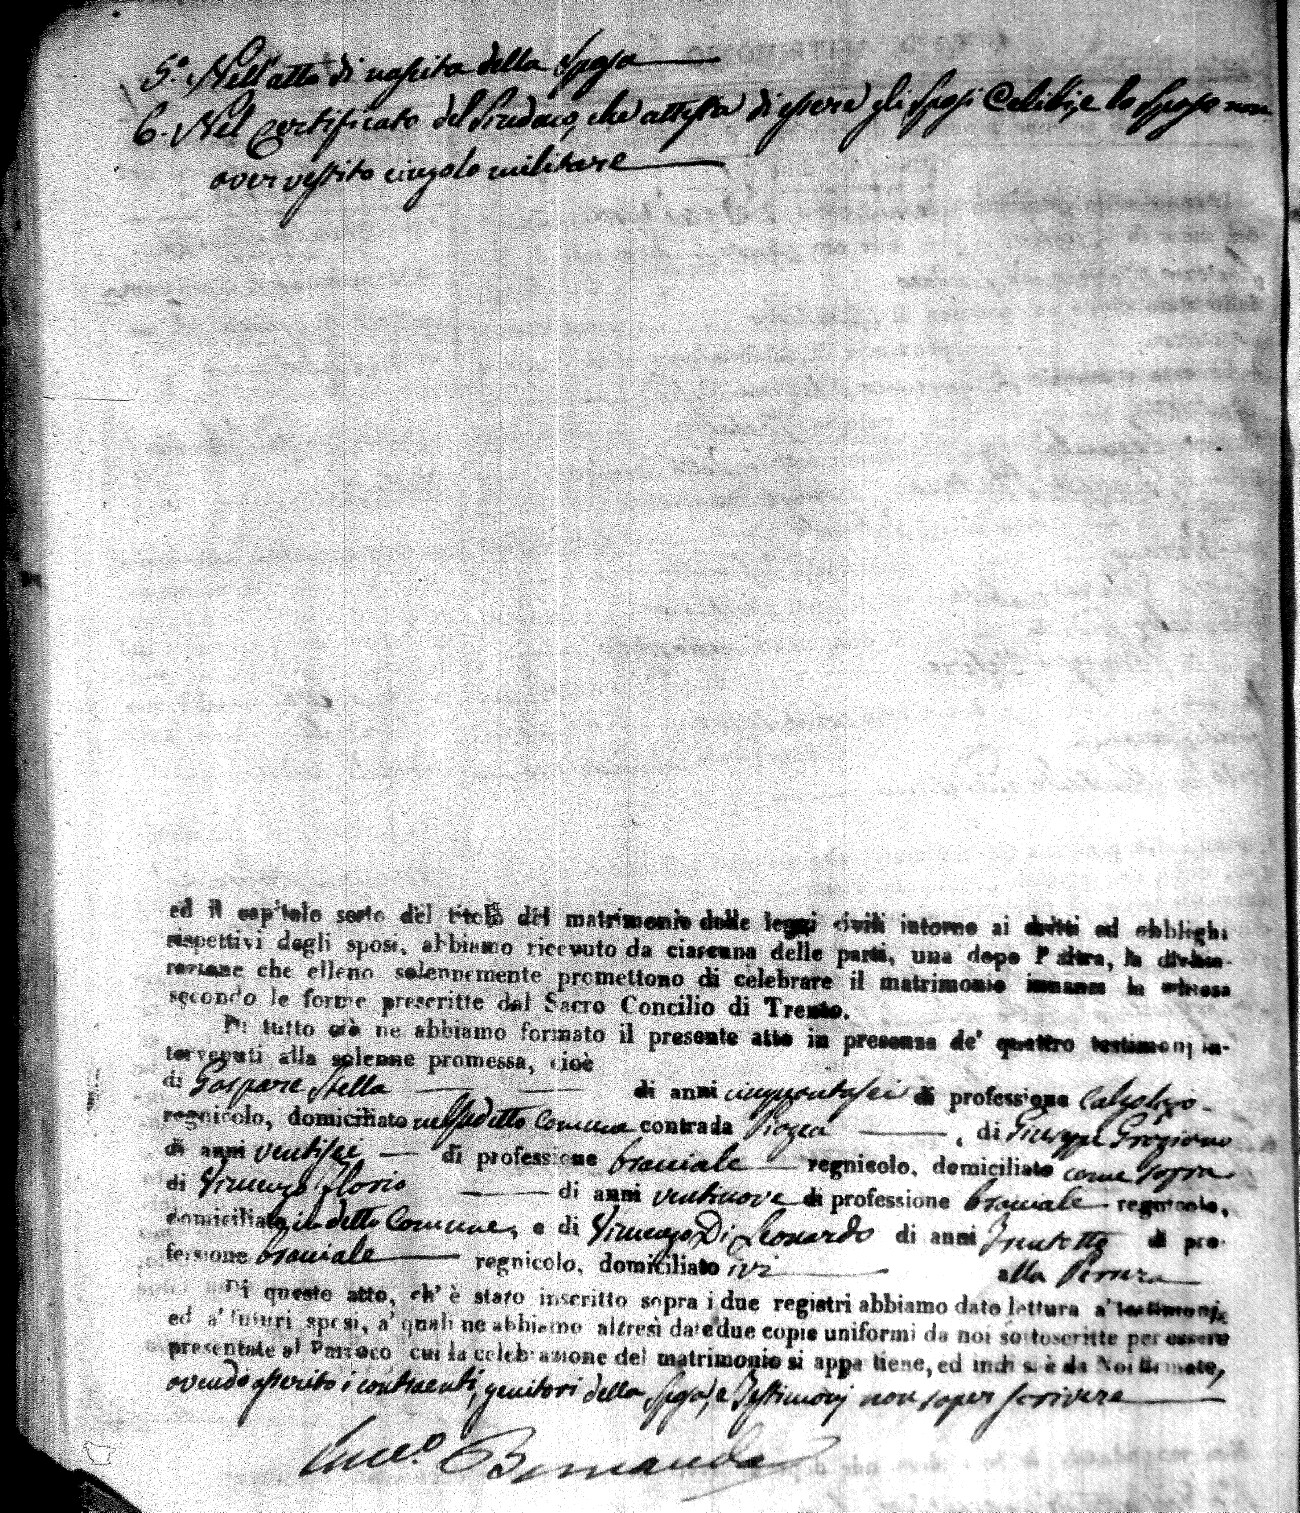 5.° Nell'atto di nascita della Sposa
6. Nel certificato del Sindaco, che attesta di essere gli Sposi Celibi, e lo Sposo non
aver vestito cingolo militare
ed il capitolo sesto del titolo del matrimonio dalle leggi civili intorno ai dritti ed obblighi
rispettivi degli sposi, abbiamo ricevuto da ciascuna delle parti, una dopo l'altra, la dichia-
razione che elleno solennemente promettono di celebrare il matrimonio innanzi la chiesa
secondo le forme prescritte dal Sacro Concilio di Trento.
Di tutto ciò ne abbiamo formato il presente atto in presenza de' quattro testimonj in-
tervenuti alla solenne promessa, cioè
di Gaspare Stella di anni cinquantasei di professione calzolajo
regnicolo, domiciliato nel suddetto Comune contrada Piazza , di Giuseppe
di anni ventisei di professione bracciale regnicolo, domiciliato come sopra
di Vincenzo Florio di anni ventinove di professione bracciale regnicolo,
domiciliato in detto Comune, e di Vincenzo Di Leonardo di anni Trentotto di pro-
fessione bracciale regnicolo, domiciliato ivi alla
Di questo atto, ch' è stato inscritto sopra i due registri abbiamo dato lettura a' testimonj,
ed a' futuri sposi, a' quali ne abbiamo altresì date due copie uniformi da noi sottoscritte per essere
presentate al Parroco cui la celebrazione del matrimonio si appartiene, ed indi si è da Noi firmato,
avendo asserito i contraenti, genitori della Sposa, e Testimonj non saper scrivere